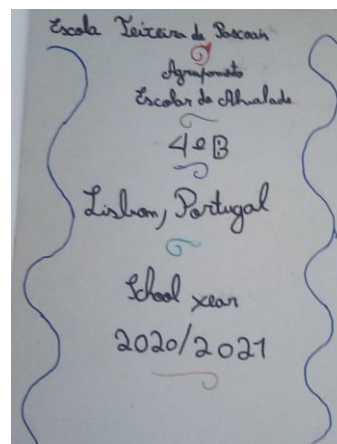 Escola Teixeira de Pascoais
Agrupamento
Escolar de Alvalade
4º B
Lisbon, Portugal
School year
2020/2021